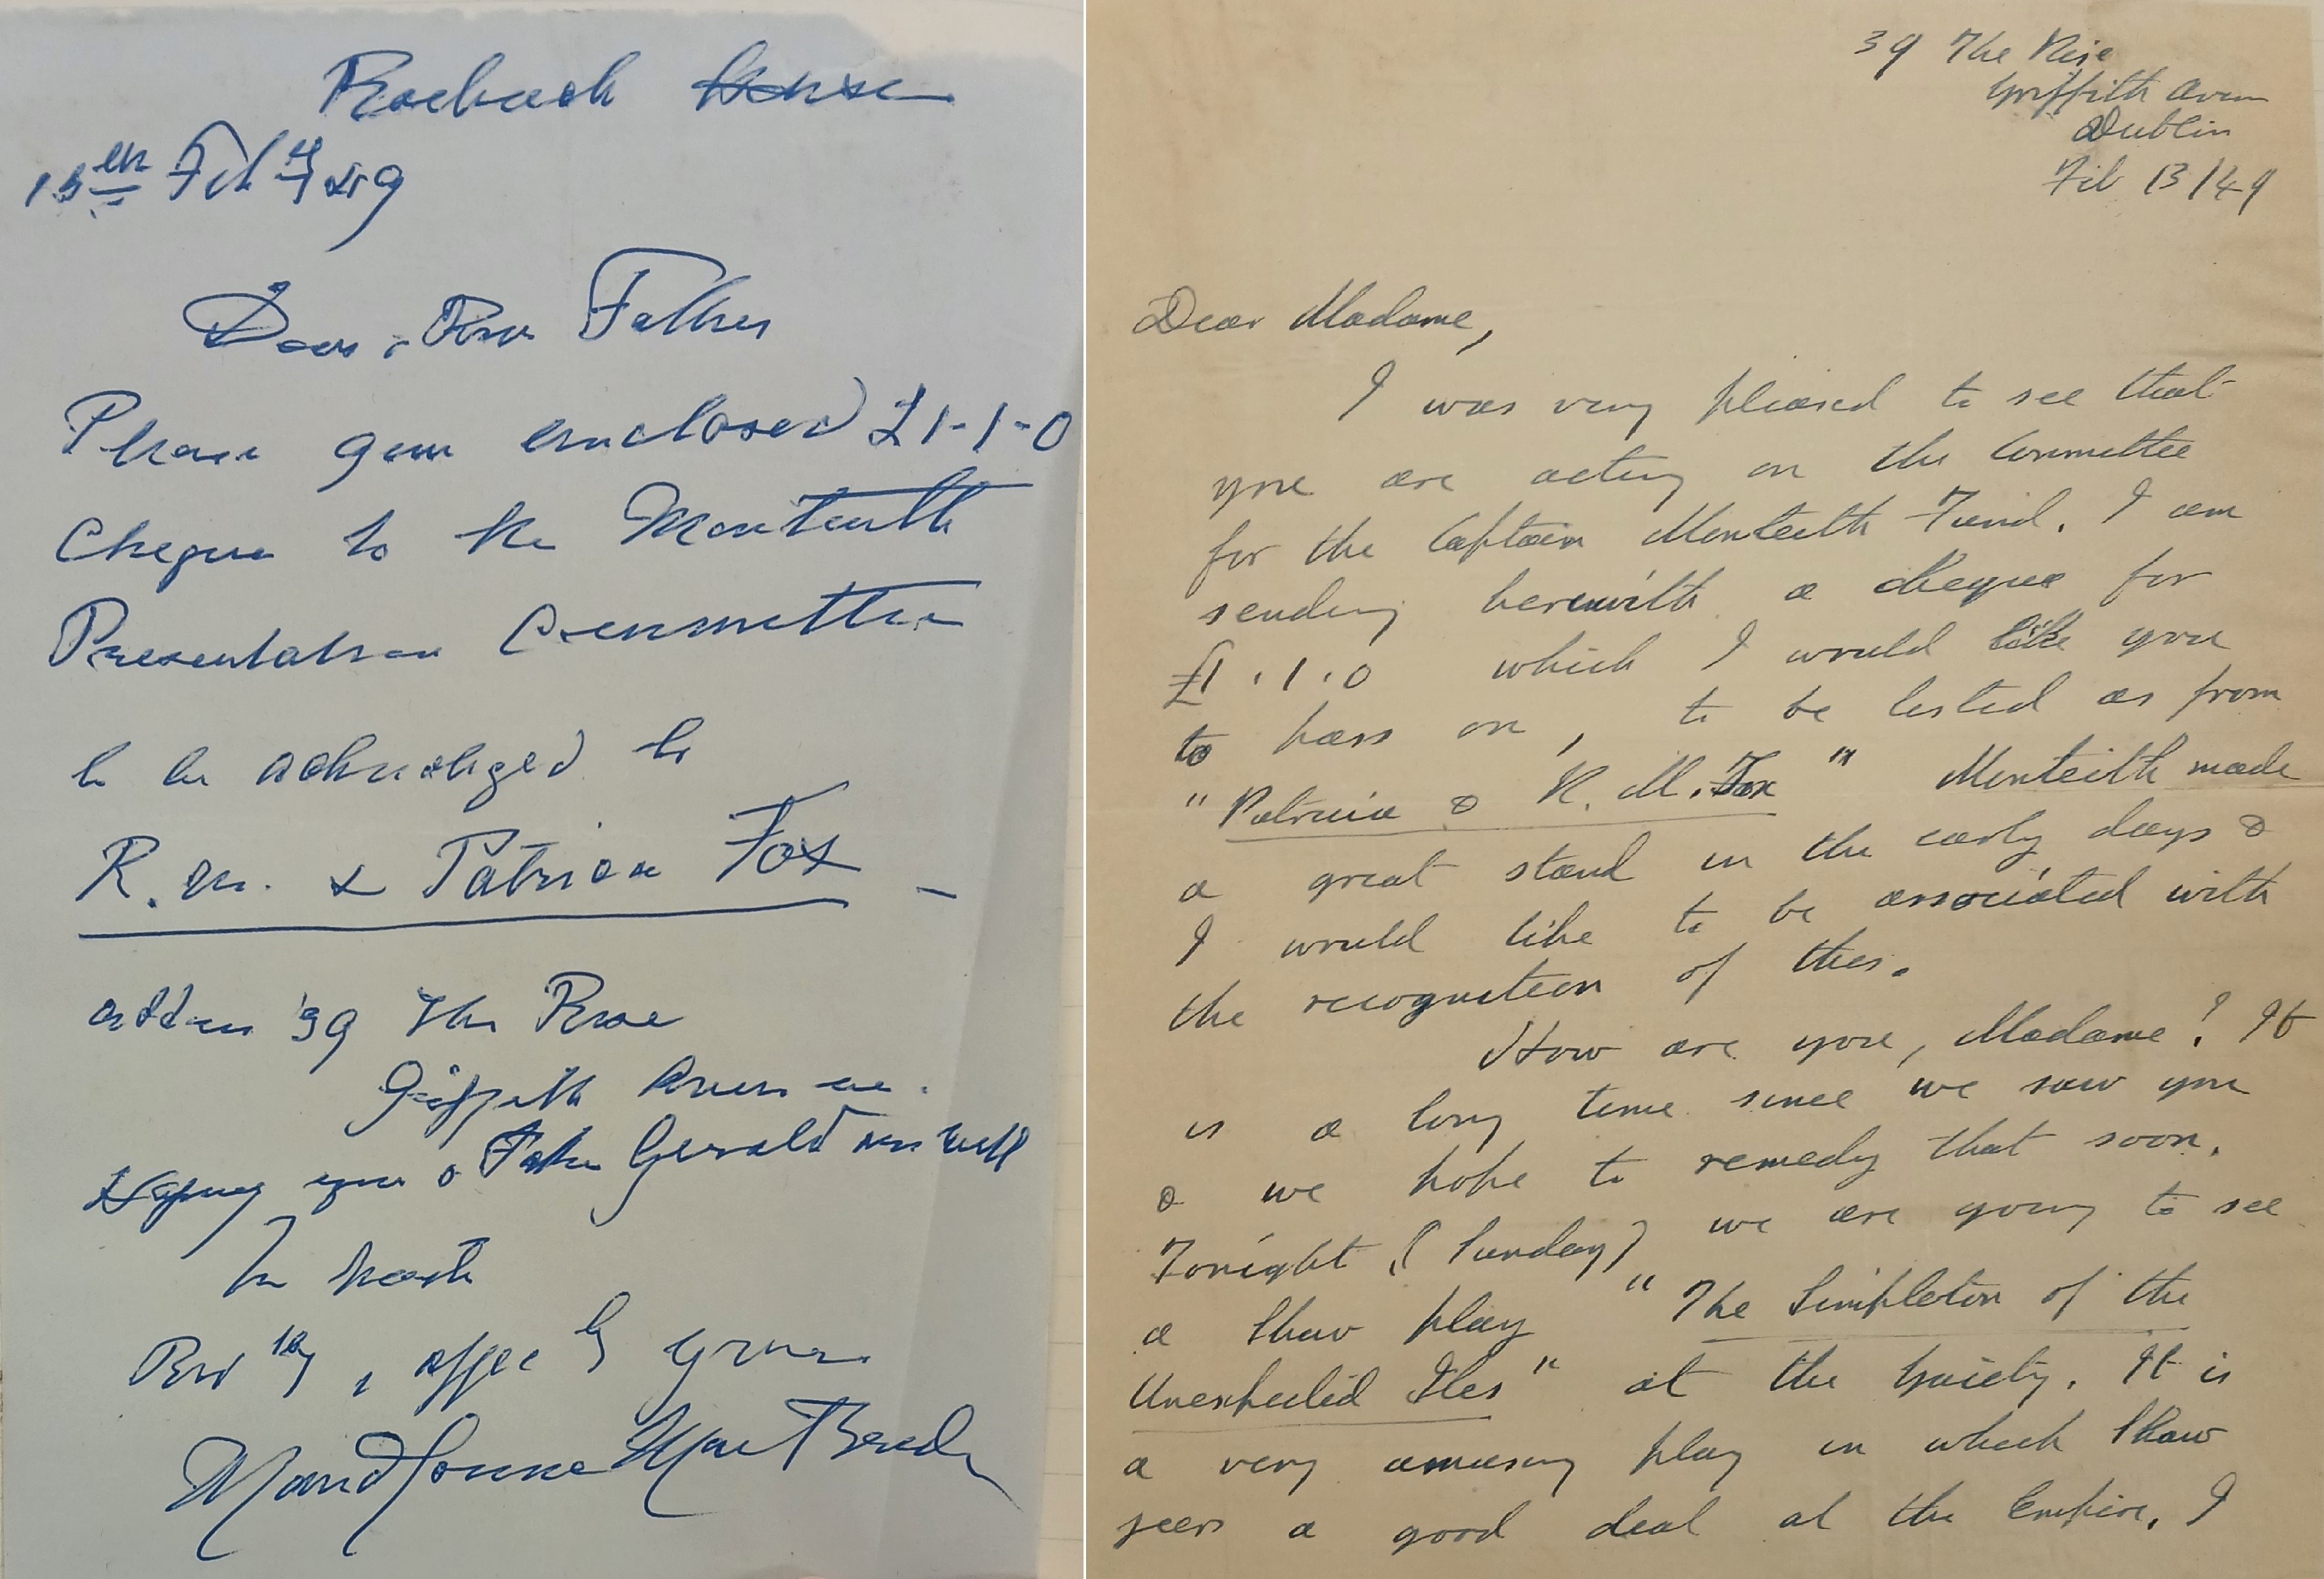 Roebuck House
15th Feby 49
Dear Rev Father
Please give enclosed £1-1-0
Cheque to the Monteith
Presentation Committee
to be acknolged to
R. M. & Patricia Fox —
address 39 The Rise
Griffith Avenue.
Hoping you & Father Gerald are well
In haste
Affecly yours
Maud Gonne MacBride
39 The Rise
Griffith Aven
Dublin
Feb 13/49
Dear Madame,
I was very pleased to see that
you are acting on the Committee
for the Captain Monteith Fund. I am
sending herewith a cheque for
£1.1.0 which I would like you
to pass on, to be listed as from
"Patricia & R. M. Fox" Monteith made
a great stand in the early days &
I would like to be associated with
the recognition of this.
How are you, Madame? It
is a long time since we saw you
& we hope to remedy that soon.
Tonight (Sunday) we are going to see
a Shaw play "The Simpleton of the
Unexpected Isles" at the Gaiety. It is
a very amusing play in which Shaw
jeers a good deal at the Empire. I